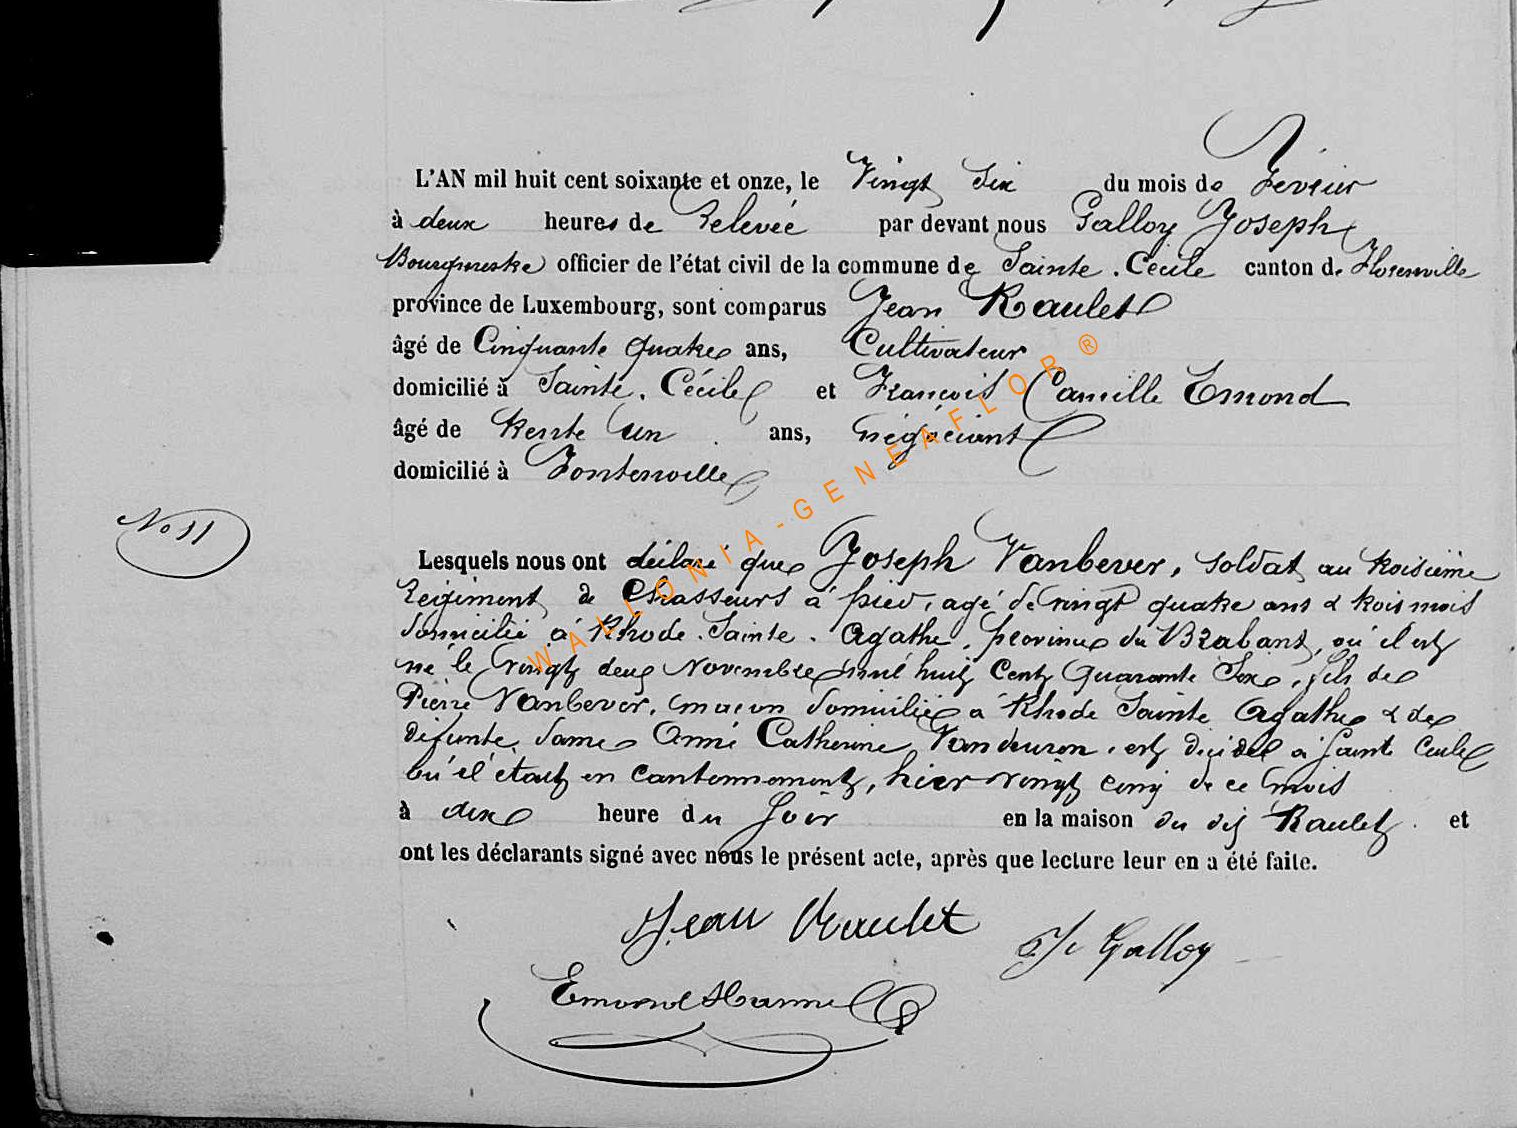 L'AN mil huit cent soixante et onze, le Vingt Six du mois de Fevrier
à deux heures de Relevée par devant nous Galloy Joseph
Bourgmestre officier de l'état civil de la commune de Sainte. Cécile canton de Florenville
province de Luxembourg, sont comparus Jean Raulet
âgé de Cinquante quatre ans, Cultivateur
domicilié à Sainte. Cécile et François Camille Emond
âgé de trente un ans, négociant
domicilié à Fontenoille
No 11
Lesquels nous ont déclaré que Joseph Vanbever, soldat au troisième
Régiment de Chasseurs à pied, agé de vingt quatre ans & trois mois
domicilié à Rhode. Sainte. Agathe, province du Brabant, où il est
né le vingt deux Novembre mil huit Cent Quarante Six, fils de
Pierre Vanbever, maçon domicilié à Rhode Sainte Agathe & de
défunte dame Anne Catherine, est décédé à Sainte Cecile
où il était en cantonnement, hier vingt cinq de ce mois
à dix heure du Soir en la maison du dit Raulet. et
ont les déclarants signé avec nous le présent acte, après que lecture leur en a été faite.
Jean Raulet
Galloy
Emond
WALLONIA-GENEAFLOR®